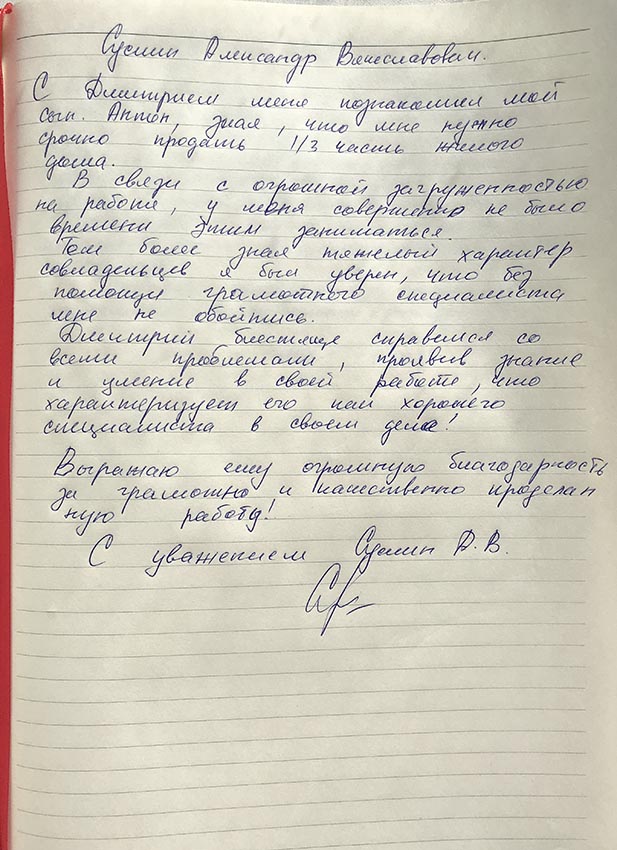 Суслин Александр Венеславович.
С Дмитрием меня познакомил мой
сын. Антон, зная, что мне нужно
срочно продать 1/3 часть жилого
дома.
В связи с огромной загруженностью
на работе, у меня совершенно не было
времени этим заниматься.
Тем более зная тяжелый характер
совладельцев я был уверен, что без
помощи грамотного специалиста
мне не обойтись.
Дмитрий блестяще справился со
всеми проблемами, проявив знание
и умение в своей работе, что
характеризует его как хорошего
специалиста в своем деле!
Выражаю ему огромную благодарность
за грамотно и качественно проделан
ную работу!
С уважением Суслин А.В.